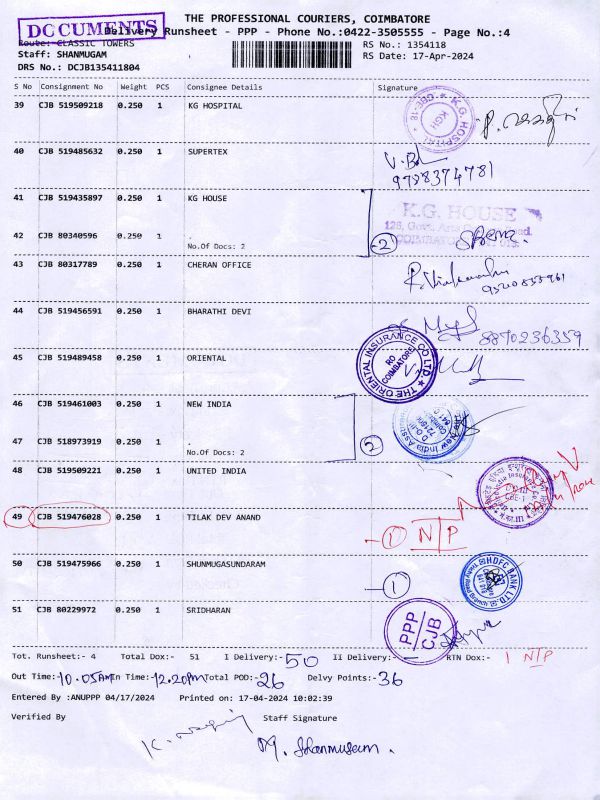 THE PROFESSIONAL COURIERS, COIMBATORE
DOCUMENTS
Delivery Runsheet - PPP - Phone No.:0422-3505555 - Page No.:4
Route: CLASSIC TOWERS RS No.: 1354118
Staff: SHANMUGAM RS Date: 17-Apr-2024
DRS No.: DCJB135411804
S No Consignment No Weight PCS Consignee Details Signature
39 CJB 519509218 0.250 1 KG HOSPITAL
K.G. HOSPITAL KGH CBE-18
40 CJB 519485632 0.250 1 SUPERTEX
9788374781
41 CJB 519435897 0.250 1 KG HOUSE
K.G. HOUSE
42 CJB 80340596 0.250 1 .
No.Of Docs: 2
2
43 CJB 80317789 0.250 1 CHERAN OFFICE
44 CJB 519456591 0.250 1 BHARATHI DEVI
8870236359
45 CJB 519489458 0.250 1 ORIENTAL
THE ORIENTAL INSURANCE CO LTD. RO COIMBATORE
46 CJB 519461003 0.250 1 NEW INDIA
47 CJB 518973919 0.250 1 .
No.Of Docs: 2
2
48 CJB 519509221 0.250 1 UNITED INDIA
49 CJB 519476028 0.250 1 TILAK DEV ANAND
1 N/P
50 CJB 519475966 0.250 1 SHUNMUGASUNDARAM
1
HDFC BANK LTD.
51 CJB 80229972 0.250 1 SRIDHARAN
PPP CJB
Tot. Runsheet:- 4 Total Dox:- 51 I Delivery:- 50 II Delivery:- — RTN Dox:- 1 N/P
Out Time:- 10.05AM In Time:- 12.20PM Total POD:- 26 Delvy Points:- 36
Entered By :ANUPPP 04/17/2024 Printed on: 17-04-2024 10:02:39
Verified By Staff Signature